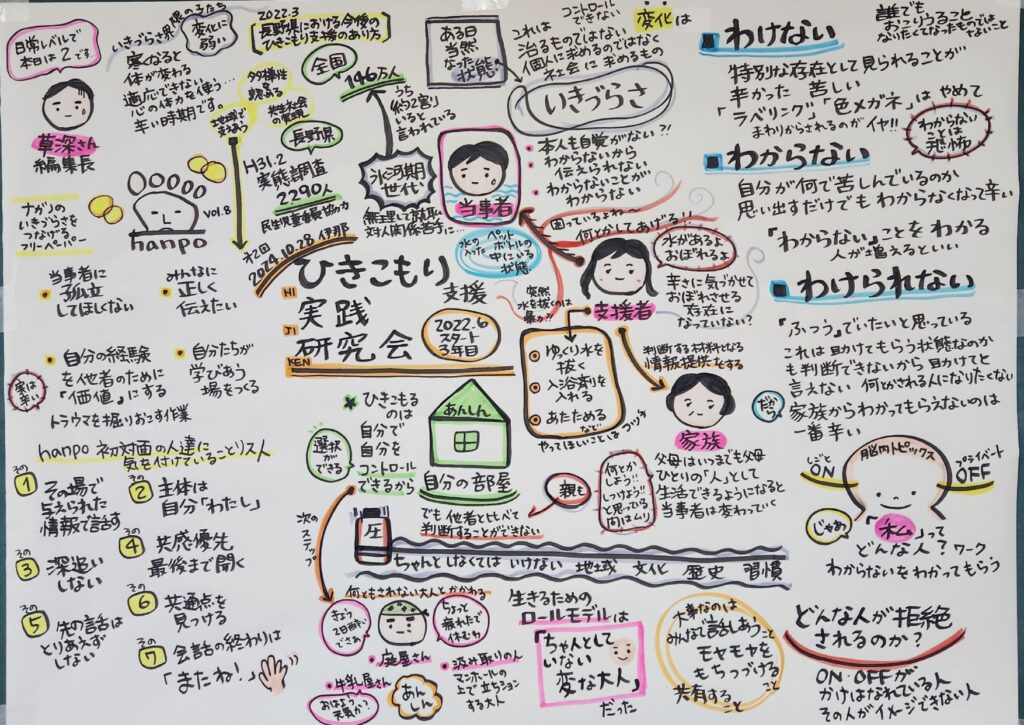 日常レベルで
本日は2です。
草深さん
編集長
いきづらさ界隈のうたち
変化に
弱い
寒くなると
体が変わる
適応できない
心の体力を使う…
辛い時期です。
2022.3
長野県における今後の
ひきこもり支援のあり方
多様性を
認める
共生社会
の実現
地域で
支えあう
全国
146万人
うち
「約2割」
いると
言われている
長野県
H31.2
実態調査
2290人
民生児童委員協力の
氷河期
世代
無理して就職
対人関係苦手に…
ナガノの
いきづらさを
つなげる
フリーペーパー
hanpo
vol.8
当事者に
孤立
してほしくない
みんなに
正しく
伝えたい
自分の経験
を他者のために
「価値」にする
自分たちが
学びあう
場をつくる
実は
辛い
トラウマを掘りおこす作業
hanpo 初対面の人達に
気を付けていること
その1
その場で
与えられた
情報で話す
その2
主体は
自分「わたし」
その3
深追い
しない
その4
共感優先
最後まで聞く
その5
先の話は
とりあえず
しない
その6
共通点を
見つける
その7
会話の終わりは
「またね!」
オ2回
2024.10.28 伊那
ひきこもり
支援
実践
研究会
HI
JI
KEN
2022.6
スタート
3年目
ある日
当然
なった
状態
これは コントロール
できない
治るものではない
個人に求めるのではなく
社会に 求めるもの
変化は
いきづらさ
当事者
本人も自覚がない?!
わからないから
伝えられない
わからないことが
わからない
水の
入った
ペット
ボトルの
中にいる
状態
困っているよね〜
何とかしてあげる!!
支援者
水があるよ
おぼれるよ
辛さに気づかせて
おぼれさせる
存在に
なっていない?
突然
水を抜くのは
暴力?
ゆっくり水を
抜く
入浴剤を
入れる
あたためる
など
やってほしいことはコツコツ
判断する材料となる
情報提供をする
家族
父母はいつまでも父母
ひとりの「人」として
生活できるようになると
当事者は変わっていく
何とか
しよう!!
しつけよう!!
と思っている
間はムリ
親も
ひきこもる
のは
自分で
自分を
コントロール
できるから
選択
が
できる
あんしん
自分の部屋
でも 他者と比べて
判断することができない
次の
ステップ
圧
ちゃんとしなくては いけない 地域 文化 歴史 習慣
何ともされない大人とかかわる
きょう
2日酔い
でさぁ
ちょっと
疲れたで
休むわ
庭屋さん
牛乳屋さん
おはよう!
元気か?
あん
しん
汲み取りの人
マンホールの
上で立ちション
する大人
生きるための
ロールモデルは
「ちゃんとして
いない
変な大人」
だった
大事なのは
みんなで話しあうこと
モヤモヤを
もちつづける
こと
共有すること
わけない
誰でも
おこりうること
なりたくてなったものでは
ないこと
特別な存在として見られることが
辛かった 苦しい
「ラベリング」「色メガネ」はやめて
まわりからされるのがイヤ!!
わからない
ことは
恐怖
わからない
自分が何で苦しんでいるのか
思い出すだけでも わからなくなって辛い
「わからない」ことを わかる
人が増えるといい
わけられない
「ふつう」でいたいと思っている
これは助けてもらう状態なのか
も判断できないから 助けてと
言えない 何かされる人になりたくない
家族からわかってもらえないのは
一番辛い
だから
脳内トピックス
しごと
ON
プライベート
OFF
じゃあ
「私」って
どんな人? ワーク
わからないをわかってもらう
どんな人が拒絶
されるのか?
ON・OFFが
かけはなれている人
その人がイメージできない人